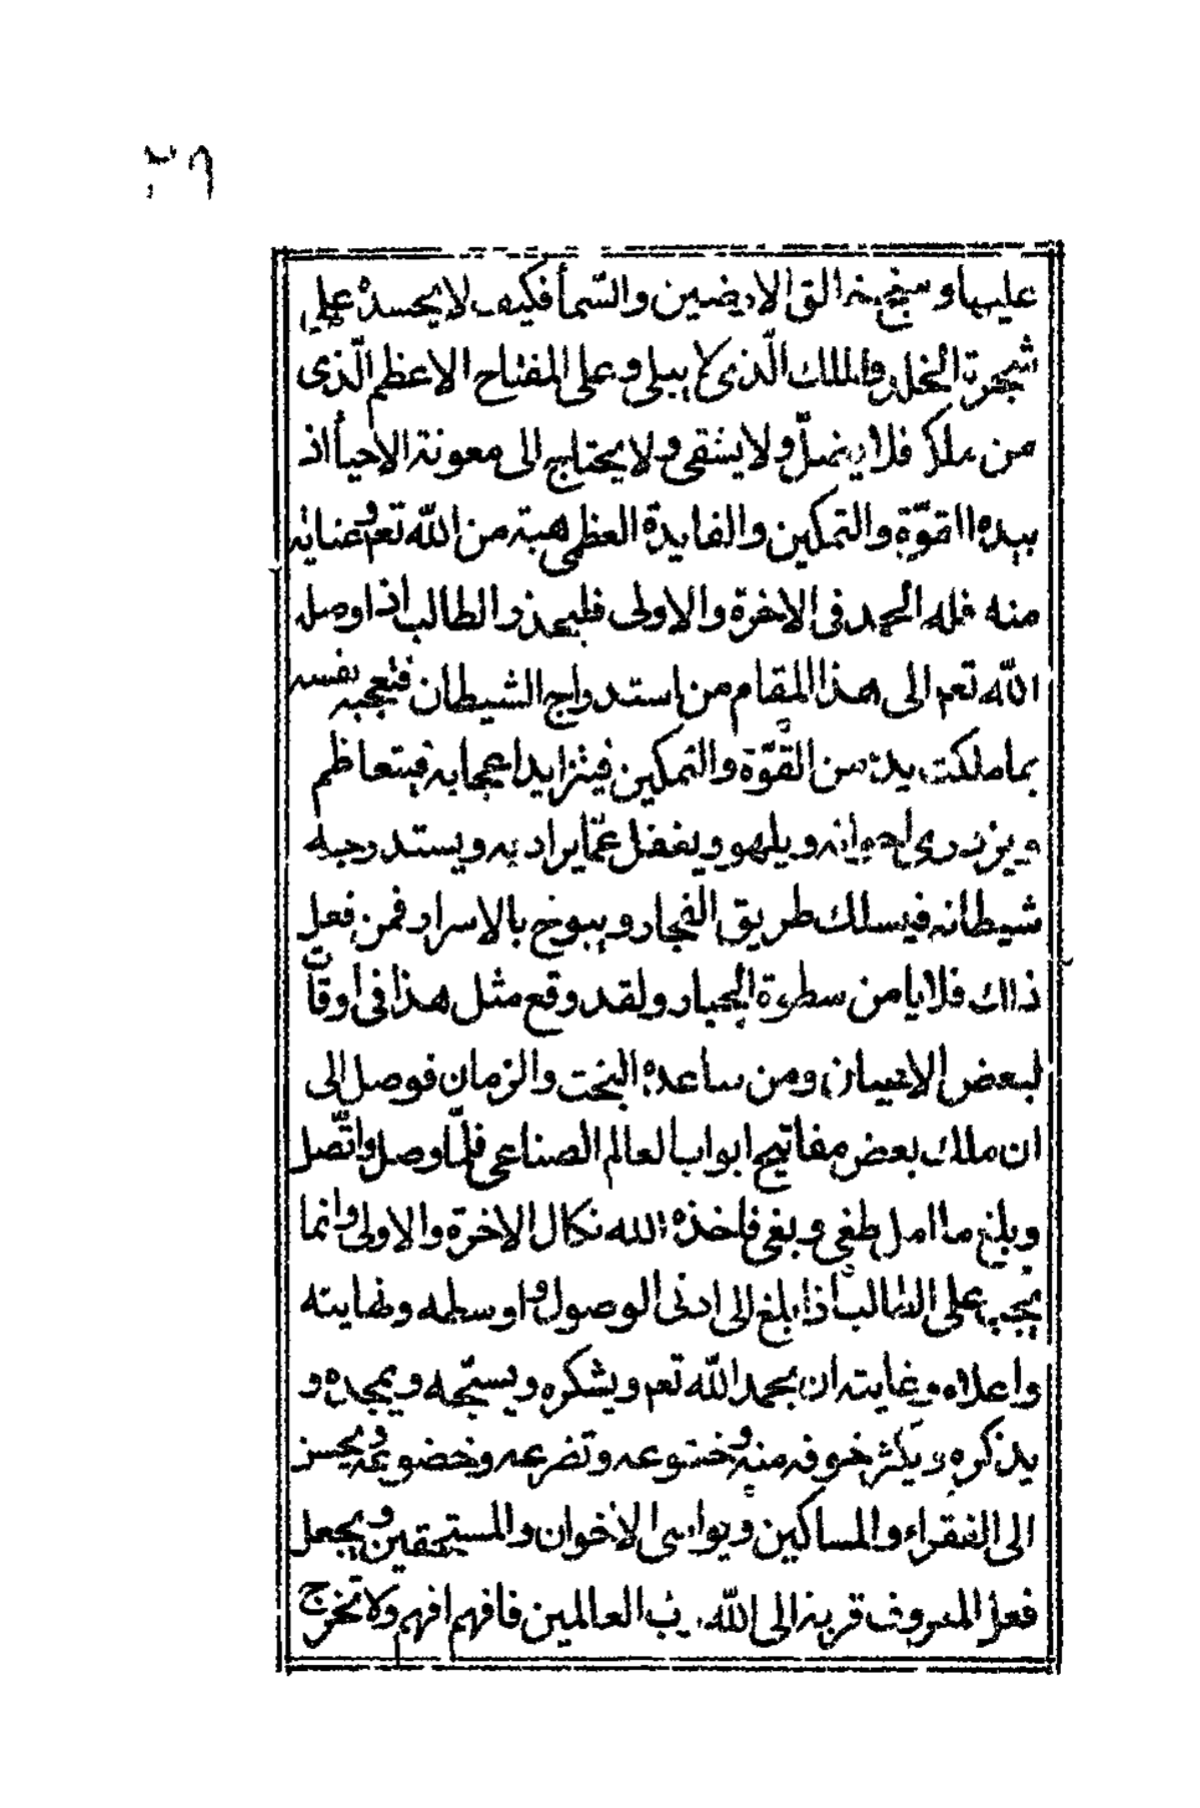 عليها وسبح خالق الارضين والسّمأ فكيف لا يحسده على
شجرة الخلد والملك الّذى لا يبلى وعلى المفتاح الاعظم الّذى
من ملكه فلا يضلّ ولا يشقى ولا يحتاج الى معونة الاحيأ اذ
بيده القوّة والتمكين والفايدة العظمى هبة من الله تعم وعناية
منه فله الحمد فى الاخرة والاولى فليحذر الطالب اذا وصل
الله تعم الى هذا المقام من استدراج الشيطان فتعجبه نفسه
بما ملكت يده من القوّة والتمكين فيتزايد اعجابه فيتعاظم
ويزدرى اخوانه ويلهو ويغفل عمّا يراد به ويستدرجه
شيطانه فيسلك طريق الفجار ويبوح بالاسرار فمن فعل
ذلك فلا يامن سطوة الجبار ولقد وقع مثل هذا فى اوقات
لبعض الاعيان ومن ساعده البخت والزمان فوصل الى
ان ملك بعض مفاتيح ابواب العالم الصناعى فلمّا وصل واتّصل
وبلغ ما امل طغى وبغى فاخذه الله نكال الاخرة والاولى وانما
يجب على الطالب اذا بلغ الى ادنى الوصول واوسطه ونهايته
واعلاه وغايته ان يحمد الله تعم ويشكره ويسبّحه ويمجده و
يذكره ويكثر خوفه منه وخشوعه وتضرعه وخضوعه ويحسن
الى الفقراء والمساكين ويواسى الاخوان والمستحقين ويجعل
فعل المعروف قربة الى الله رب العالمين فافهم افهم ولا تخرج